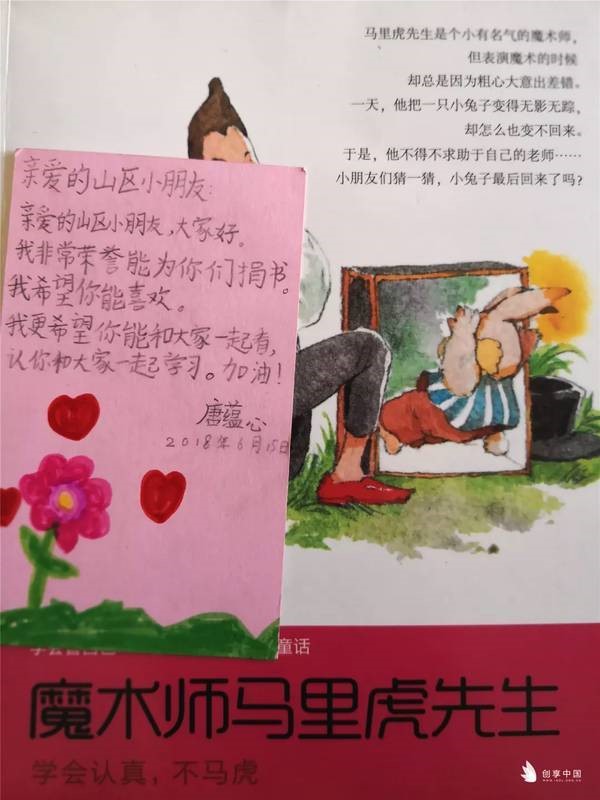 马里虎先生是个小有名气的魔术师，
但表演魔术的时候
却总是因为粗心大意出差错。
一天，他把一只小兔子变得无影无踪，
却怎么也变不回来。
于是，他不得不求助于自己的老师……
小朋友们猜一猜，小兔子最后回来了吗？
亲爱的山区小朋友：
亲爱的山区小朋友，大家好。
我非常荣誉能为你们捐书。
我希望你能喜欢。
我更希望你能和大家一起看，
认你和大家一起学习。加油！
唐蕴心
2018年6月15日
童话
魔术师马里虎先生
学会认真，不马虎
创享中国